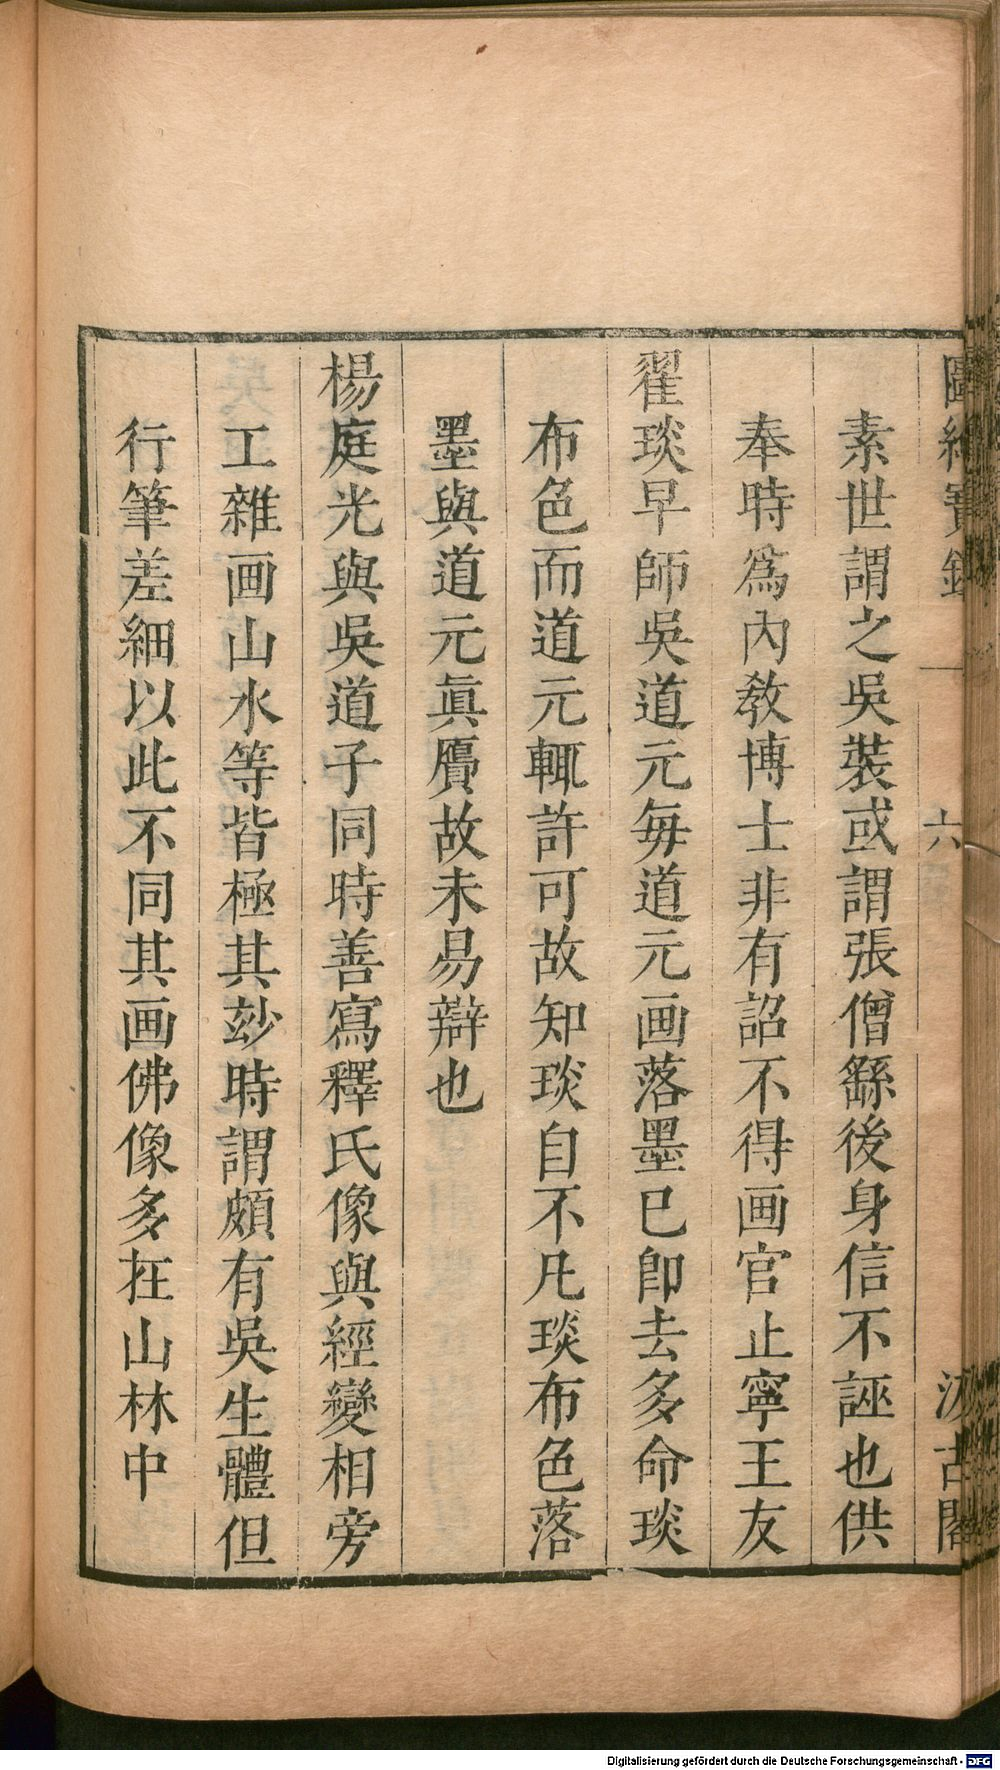 圖繪寶鑑 六 汲古閣
素世謂之吳裝或謂張僧繇後身信不誣也供
奉時爲內教博士非有詔不得画官止寧王友
翟琰早師吳道元每道元画落墨已卽去多命琰
布色而道元輒許可故知琰自不凡琰布色落
墨與道元眞贗故未易辯也
楊庭光與吳道子同時善寫釋氏像與經變相旁
工雜画山水等皆極其玅時謂頗有吳生體但
行筆差細以此不同其画佛像多在山林中
Digitalisierung gefördert durch die Deutsche Forschungsgemeinschaft - DFG